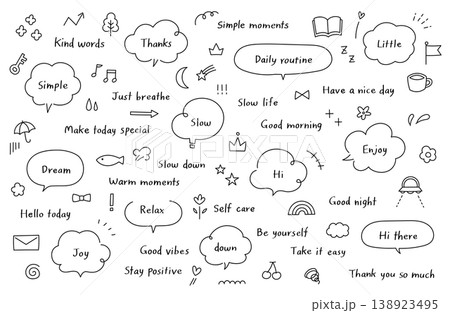 Simple moments
Kind words
Thanks
Little
Daily routine
Simple
Have a nice day
Just breathe
Slow life
Make today special
Slow
Good morning
PIXTA
Enjoy
Slow down
Dream
Hi
Warm moments
Hello today
Relax
Self care
Good night
Be yourself
Hi there
Joy
Good vibes
down
Take it easy
Stay positive
Thank you so much
pixta.jp - 138923495